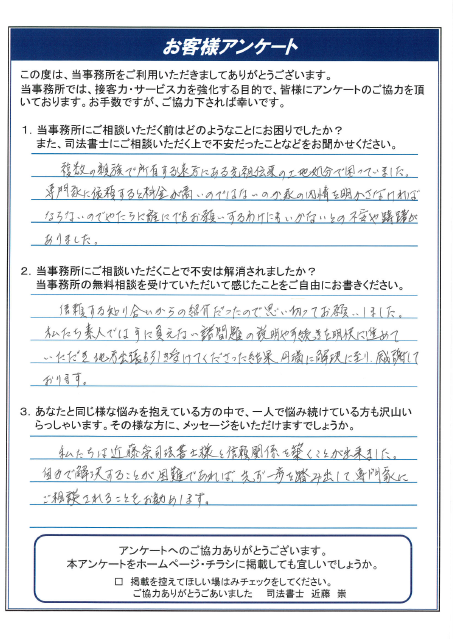 お客様アンケート
この度は、当事務所をご利用いただきましてありがとうございます。
当事務所では、接客力・サービス力を強化する目的で、皆様にアンケートのご協力を頂
いております。お手数ですが、ご協力下されば幸いです。
1．当事務所にご相談いただく前はどのようなことにお困りでしたか？
また、司法書士にご相談いただく上で不安だったことなどをお聞かせください。
複数の親族で所有する遠方にある先祖伝来の土地処分で困っていました。
専門家に依頼すると料金が高いのではないのか家の内情を明かさなければ
ならないのでやたらに誰にでもお願いするわけにもいかないとの不安や躊躇が
ありました。
2．当事務所にご相談いただくことで不安は解消されましたか？
当事務所の無料相談を受けていただいて感じたことをご自由にお書きください。
信頼する知り合いからの紹介だったので思い切ってお願いしました。
私たち素人では手に負えない諸問題の説明や手続きを明快に進めて
いただき地方出張も引き受けてくださった結果、円満に解決に至り、感謝して
おります。
3．あなたと同じ様な悩みを抱えている方の中で、一人で悩み続けている方も沢山い
らっしゃいます。その様な方に、メッセージをいただけますでしょうか。
私たちは近藤崇司法書士様と信頼関係を築くことが出来ました。
自分で解決することが困難であれば、先ず一歩を踏み出して専門家に
ご相談されることをお勧めします。
アンケートへのご協力ありがとうございます。
本アンケートをホームページ・チラシに掲載しても宜しいでしょうか。
□ 掲載を控えてほしい場はみチェックをしてください。
ご協力ありがとうごあいました 司法書士 近藤 崇